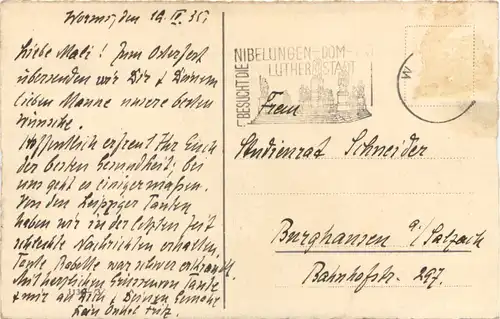 Worms, den 19. IV. 35.
Liebe Mali! Zum Osterfest
übersenden wir Dir & Deinem
lieben Manne unsere besten
Wünsche.
Hoffentlich erfreut Ihr Euch
der besten Gesundheit; bei
uns geht es einigermaßen.
Von den Leipziger Tanten
haben wir in der letzten Zeit
schlechte Nachrichten erhalten,
Tante Babette war schwer erkrankt.
Mit herzlichen Grüssen von Tante
& mir an Dich & Deinen Gemahl
Dein Onkel Fritz.
BESUCHT DIE
NIBELUNGEN-DOM-
LUTHERSTADT
Frau
Studienrat Schneider
Burghausen a/Salzach
Bahnhofstr. 297.